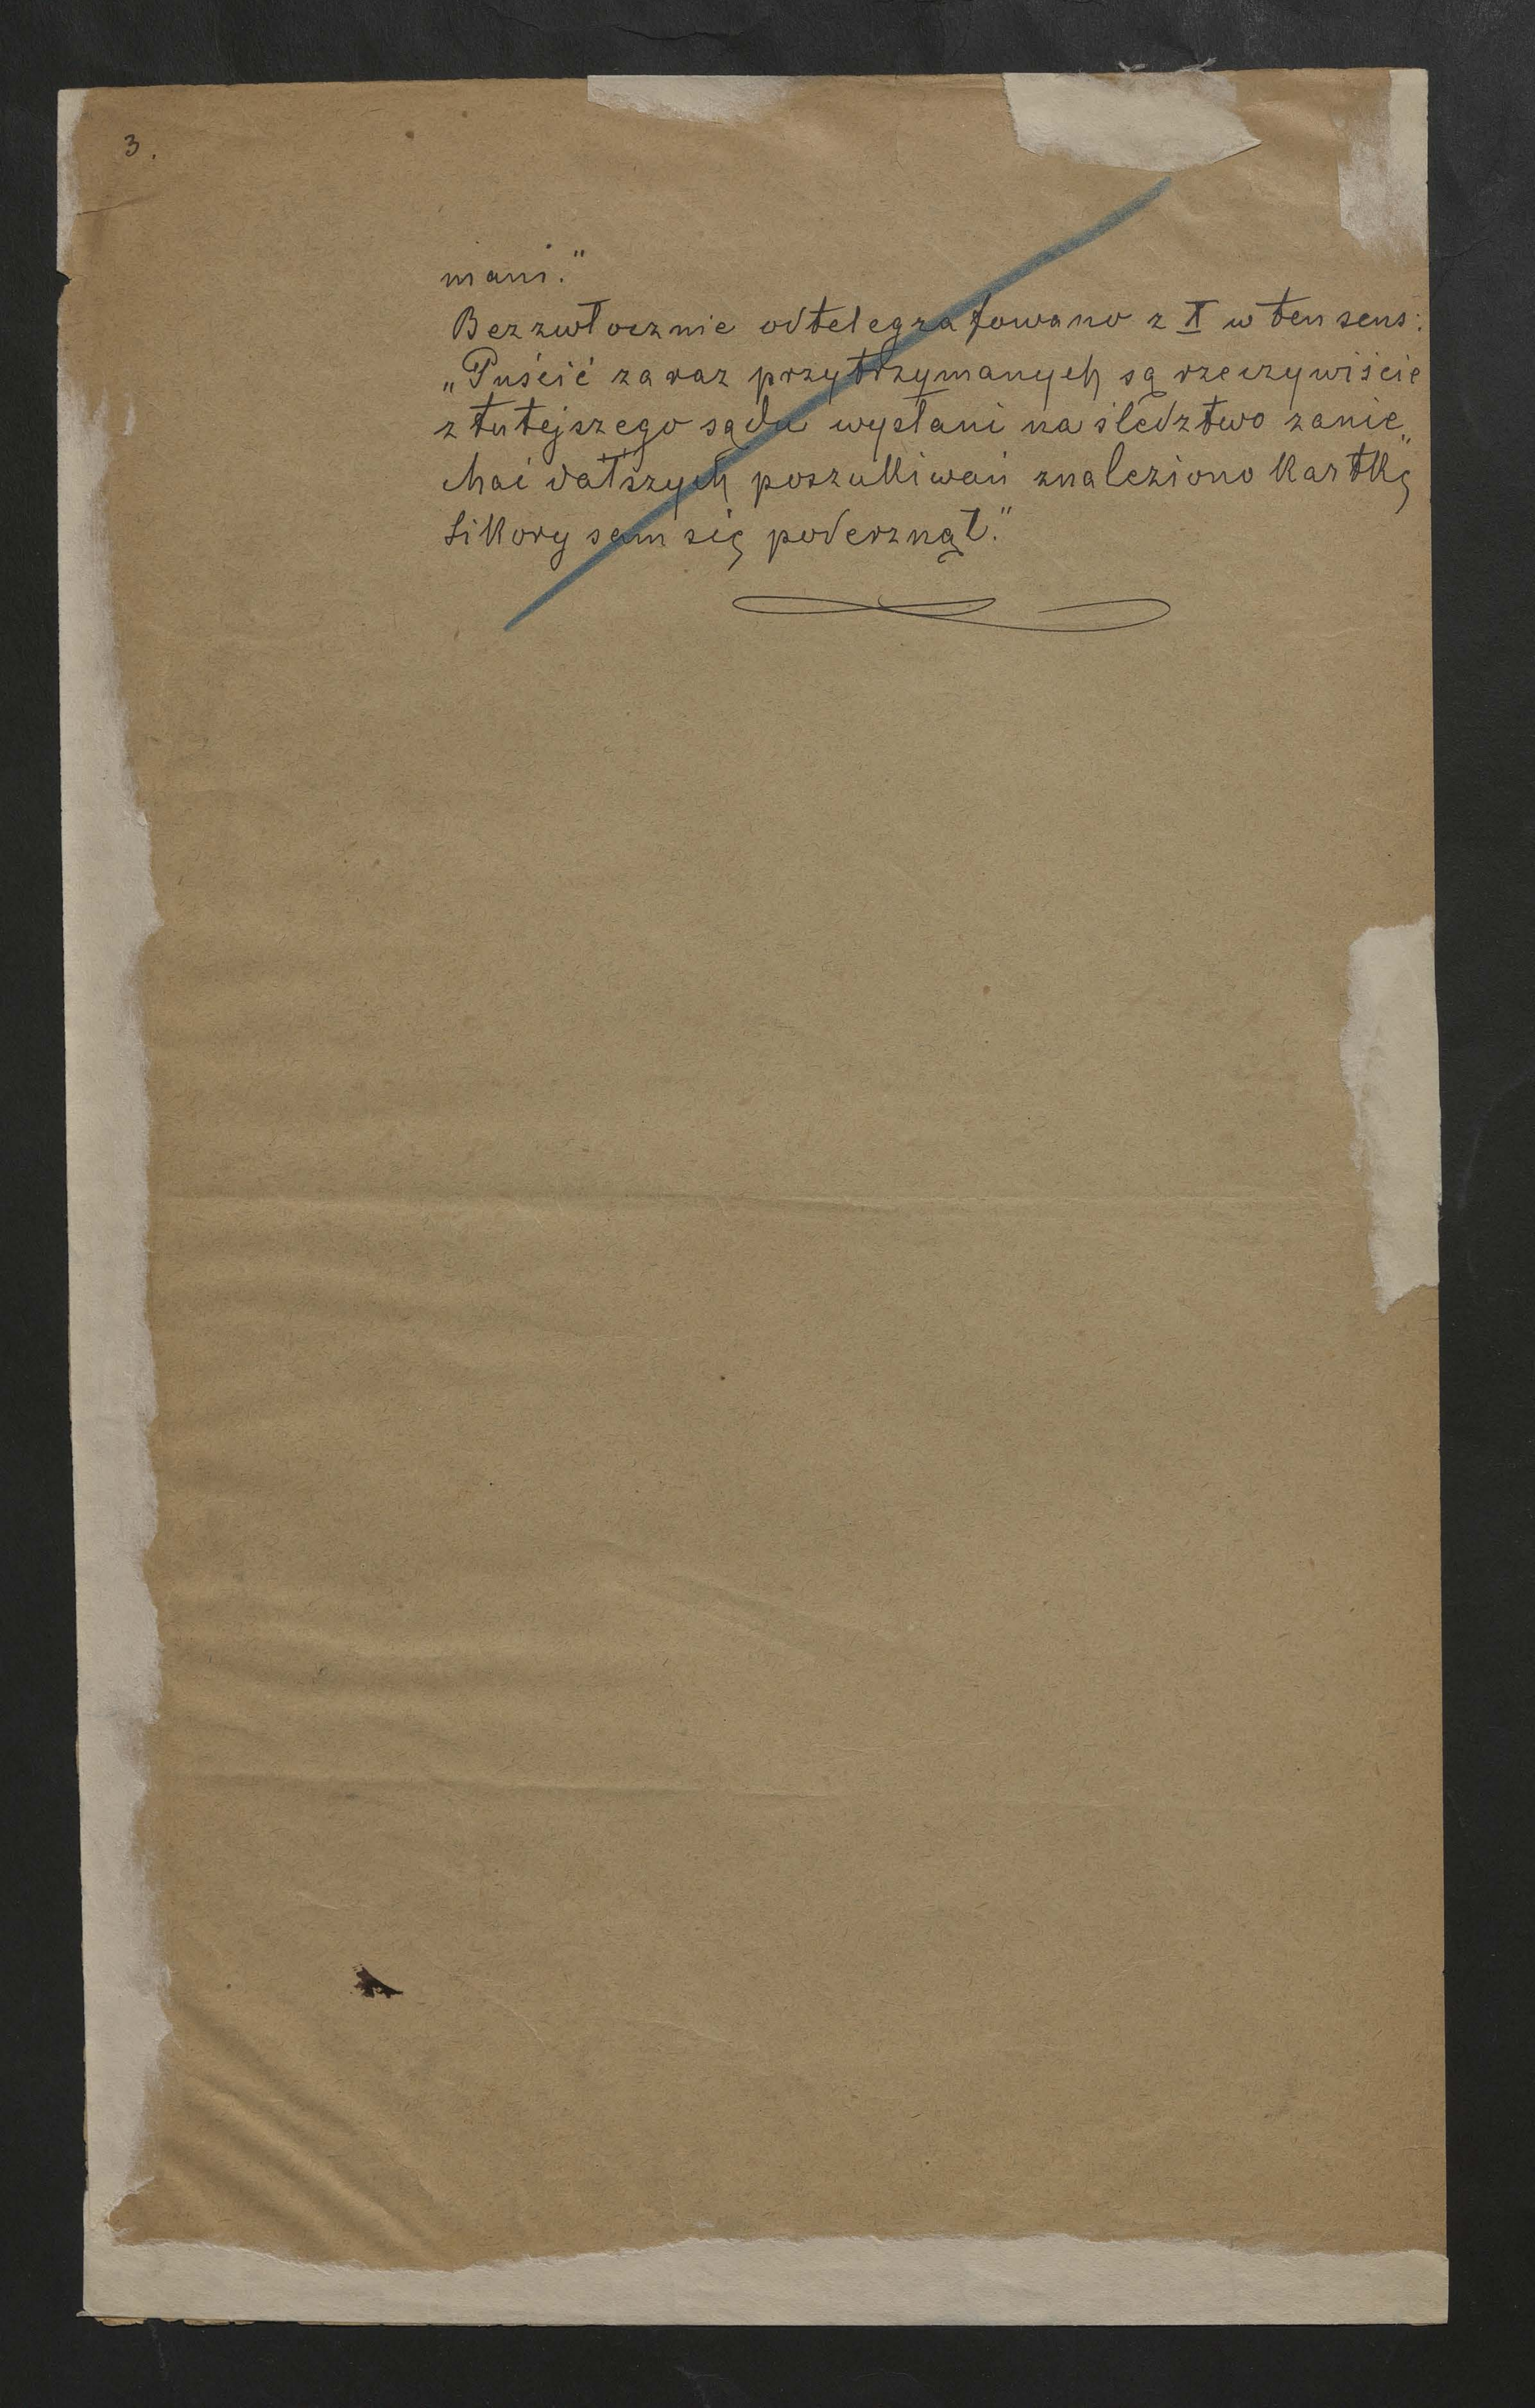 3.
mani."
Bezzwłocznie odtelegrafowano z X w ten sens:
„Puścić zaraz przytrzymanych są rzeczywiście
z tutejszego sądu wysłani na śledztwo zanie„
chać dalszych poszukiwań znaleziono kartkę
Sikory sam się poderznął."